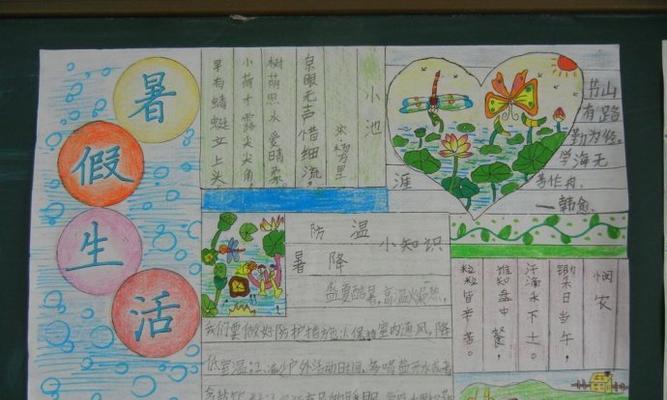 暑
假
生
活
小池
宋 杨万里
泉眼无声惜细流，
树荫照水爱晴柔。
小荷才露尖尖角，
早有蜻蜓立上头
书山
有路
勤为径，
学海无
涯
苦作舟。
——韩愈
防温
暑降
小知识
盛夏酷暑，高温
我们要做好防护措施 保持室内通风，降
低室温 户外活动时间，多喝 开水或者
悯农
锄禾日当午，
汗滴禾下土。
谁知盘中餐，
粒粒皆辛苦。